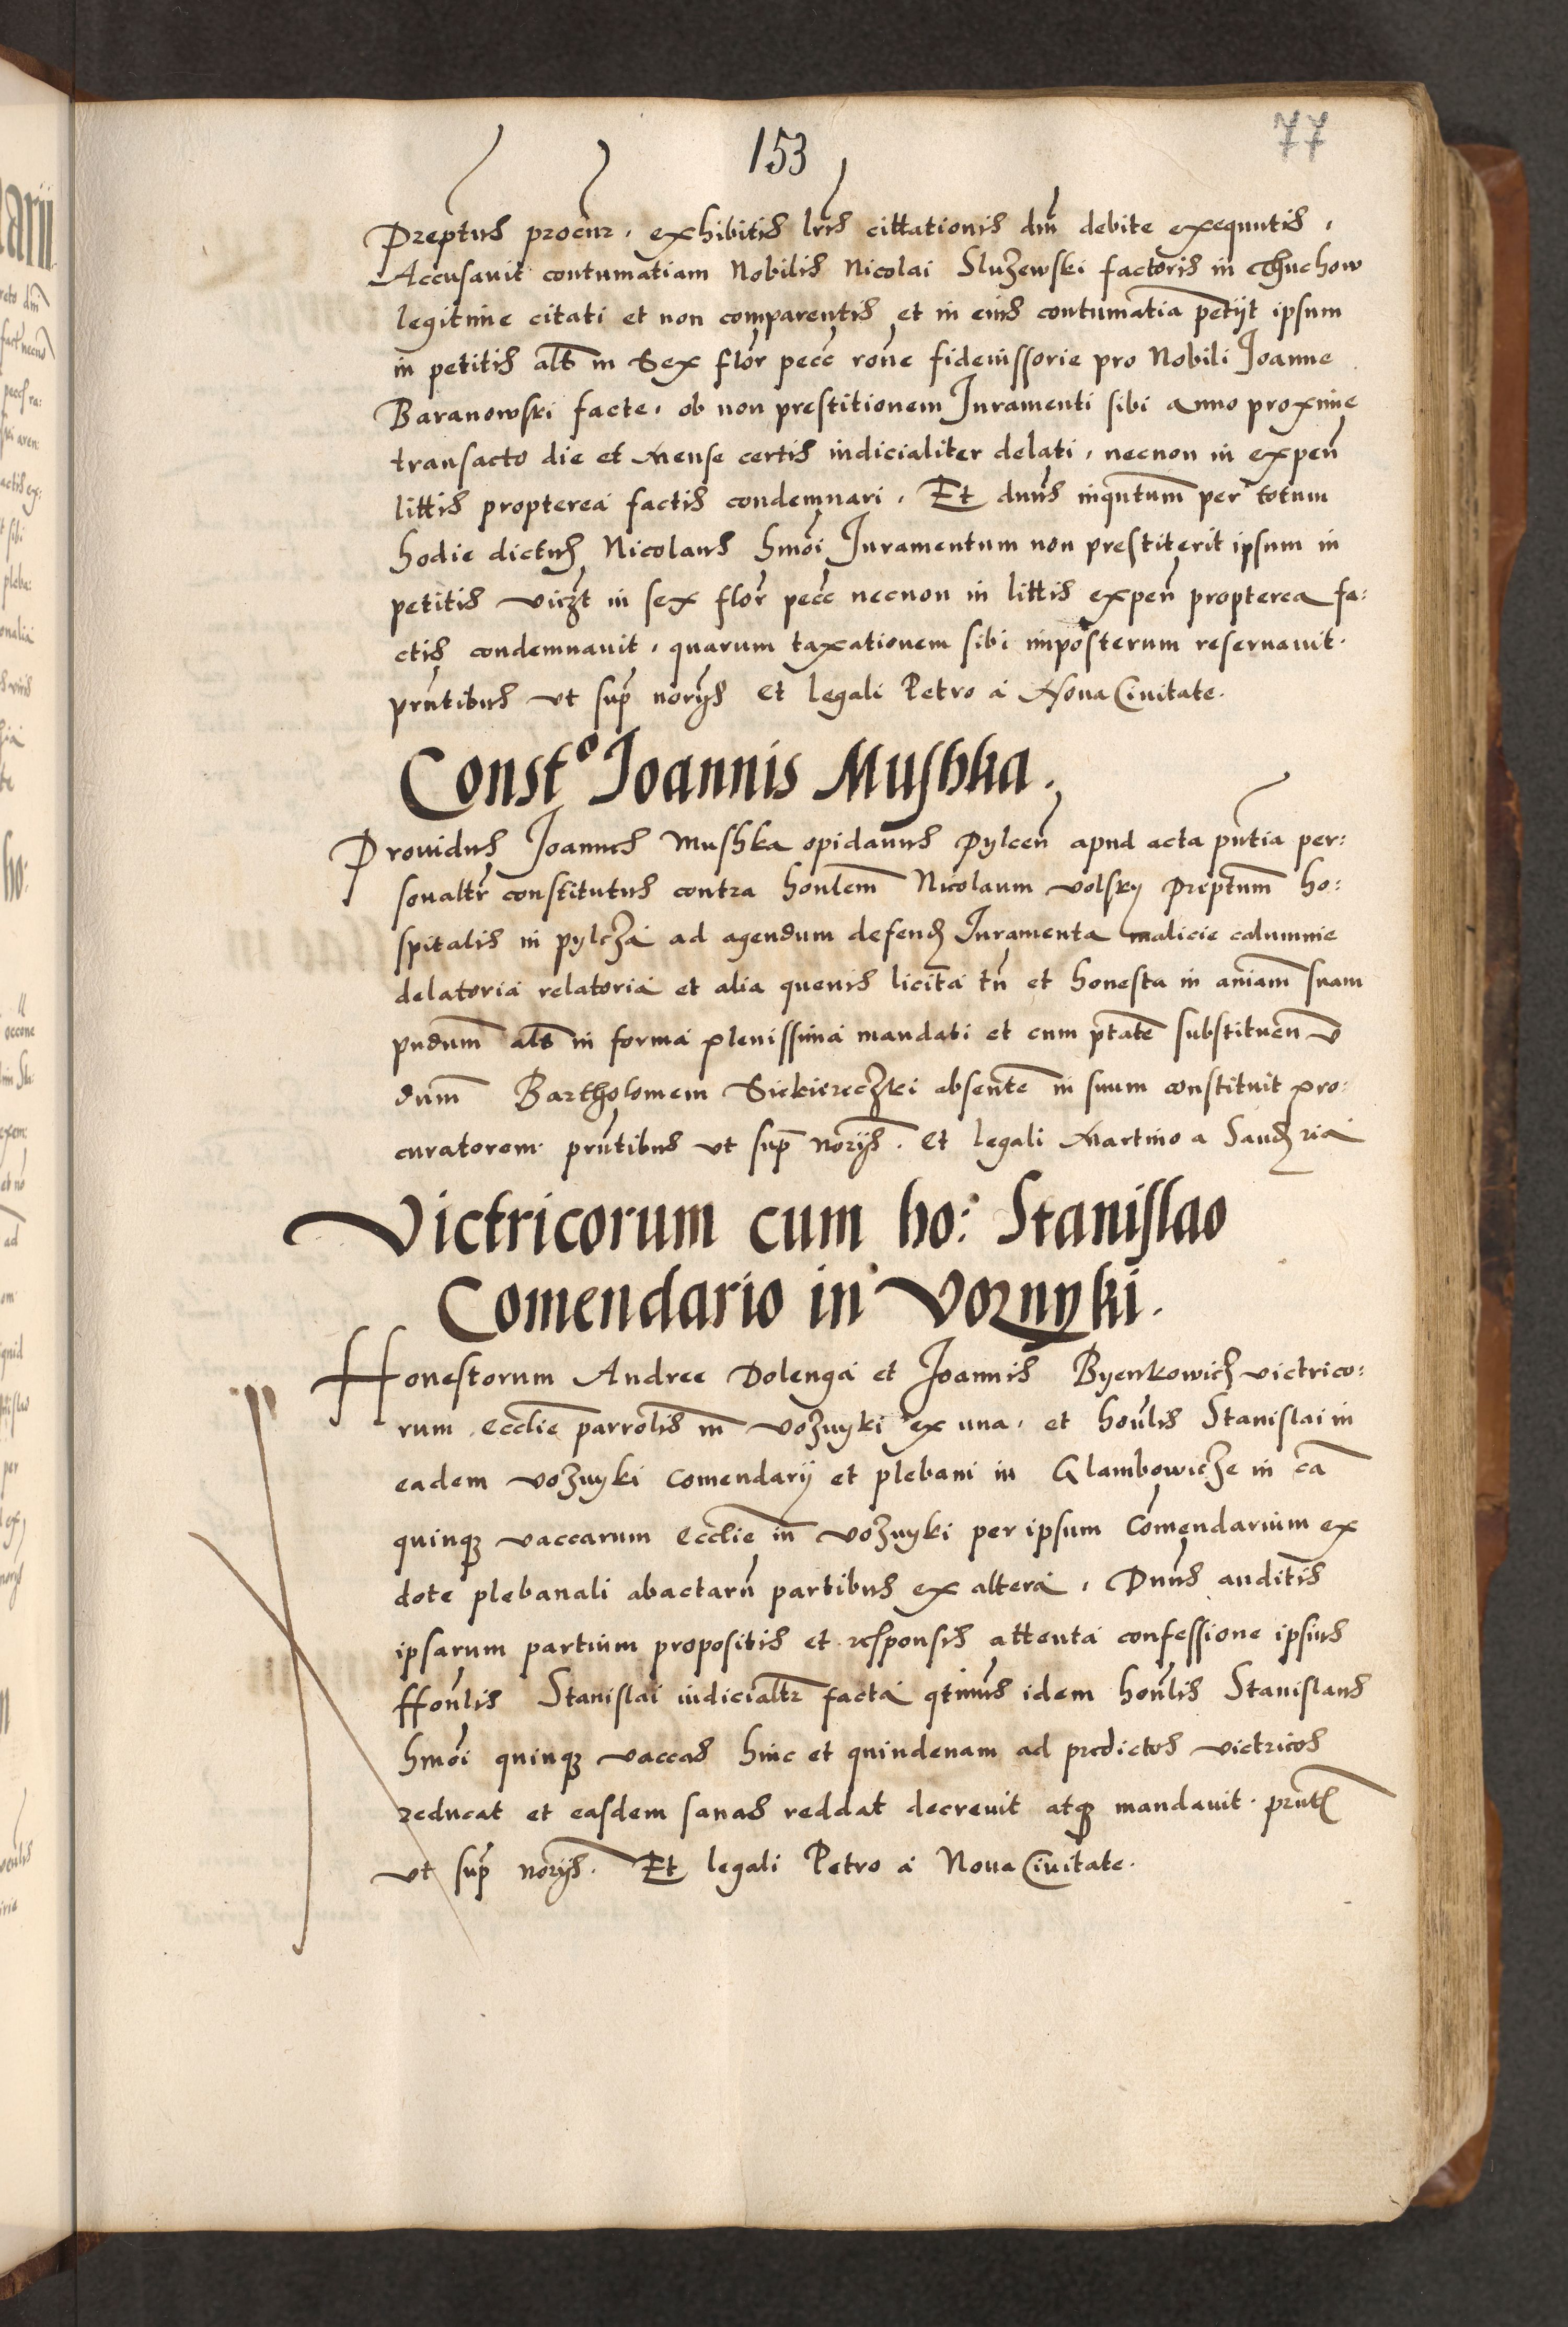 153
77
Preptus procur. exhibitis lris cittationis dni debite exequutis.
Accusavit contumatiam Nobilis Nicolai Sluzewski factoris in Chuchow
legitime citati et non comparentis et in eius contumatia petijt ipsum
in petitis als in Sex flor pecc rone fideiussorie pro Nobili Joanne
Baranowski facte. ob non prestitionem Juramenti sibi anno proxime
transacto die et mense certis iudicialiter delati. necnon in expen
littis propterea factis condemnari. Et dnus inquntum per totum
hodie dictus Nicolaus hmoi Juramentum non prestiterit ipsum in
petitis viczt in sex flor pecc necnon in littis expen propterea fa:
ctis condemnavit. quarum taxationem sibi imposterum reservavit.
prntibus ut sup norijs Et legali Petro a Nova Civitate.
Const.º Joannis Mushka.
Providus Joannes Mushka opidanus Pylcen apud acta pntia per:
sonaltr constitutus contra honlem Nicolaum Volsky preptum ho:
spitalis in pylcza ad agendum defend Juramenta malicie calumnie
delatoria relatoria et alia quevis licita tn et honesta in aniam suam
pndum als in forma plenissima mandati et cum ptate substituen v
dum Bartholomeum Siekiereczki absente in suum constituit pro:
curatorem prntibus ut sup norijs. Et legali Martino a
Victricorum cum ho: Stanislao
Comendario in Voznyki.
Honestorum Andree Dolenga et Joannis Byenkowich victrico:
rum Ecclie parrolis in Voznyki ex una. et honlis Stanislai in
eadem voznyki Comendarij et plebani in Glambowicze in ca
quinq vaccarum Ecclie in voznyki per ipsum Comendarium ex
dote plebanali abactaru partibus ex altera. Dnus auditis
ipsarum partium propositis et responsis attenta confessione ipsius
Honlis Stanislai iudicialtr facta qtinus idem honlis Stanislaus
hmoi quinq vaccas hinc et quindenam ad predictos victricos
reducat et easdem sanas reddat decrevit atq mandavit. prnt
ut sup norijs. Et legali Petro a Nova Civitate.